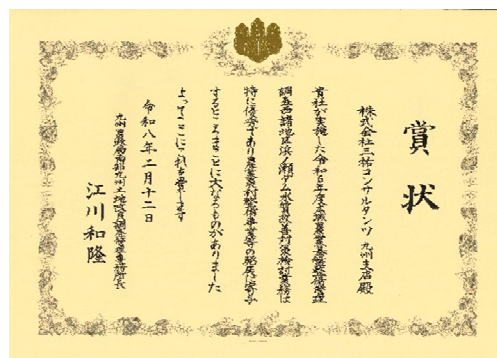 賞状
株式会社三祐コンサルタンツ 九州支店殿
貴社が実施した令和6年度広域農業基盤整備管理
調査西諸地区浜ノ瀬ダム水質改善対策検討業務は
特に優秀であり農業農村整備事業等の発展に寄与
するところまことに大なるものがありました
よってここにこれを賞します
令和八年二月十二日
九州農政局南部九州土地改良調査管理事務所長
江川和隆